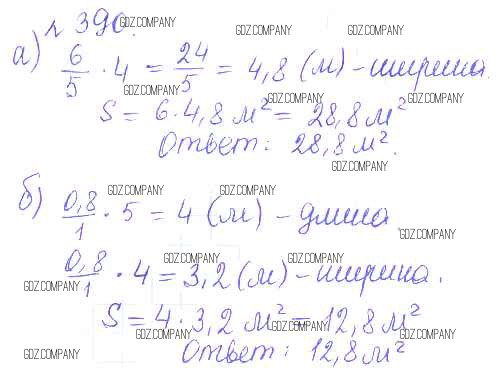 № 390.
GDZ.COMPANY GDZ.COMPANY GDZ.COMPANY
а) 6/5 · 4 = 24/5 = 4,8 (м) – ширина.
GDZ.COMPANY GDZ.COMPANY GDZ.COMPANY
S = 6 · 4,8 м² = 28,8 м²
Ответ: 28,8 м².
GDZ.COMPANY
GDZ.COMPANY GDZ.COMPANY
б) 0,8/1 · 5 = 4 (м) – длина.
GDZ.COMPANY
GDZ.COMPANY GDZ.COMPANY
0,8/1 · 4 = 3,2 (м) – ширина.
GDZ.COMPANY GDZ.COMPANY
S = 4 · 3,2 м² = 12,8 м²
GDZ.COMPANY GDZ.COMPANY GDZ.COMPANY
Ответ: 12,8 м²
GDZ.COMPANY